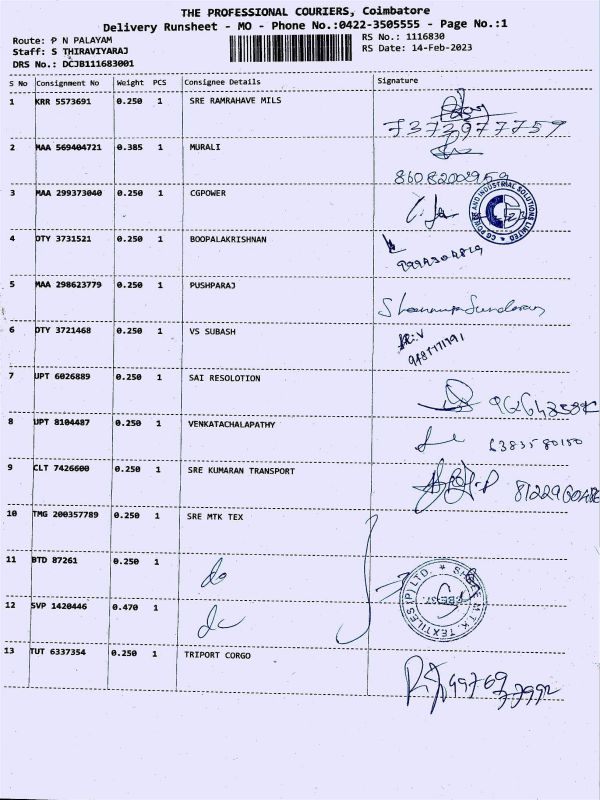 THE PROFESSIONAL COURIERS, Coimbatore
Delivery Runsheet - MO - Phone No.:0422-3505555 - Page No.:1
Route: P N PALAYAM RS No.: 1116830
Staff: S THIRAVIYARAJ RS Date: 14-Feb-2023
DRS No.: DCJB111683001
S No Consignment No Weight PCS Consignee Details Signature
1 KRR 5573691 0.250 1 SRE RAMRAHAVE MILS
7373977759
2 MAA 569404721 0.385 1 MURALI
8608200959
3 MAA 299373040 0.250 1 CGPOWER
CG POWER AND INDUSTRIAL SOLUTIONS LIMITED
4 DTY 3731521 0.250 1 BOOPALAKRISHNAN
9994304819
5 MAA 298623779 0.250 1 PUSHPARAJ
6 DTY 3721468 0.250 1 VS SUBASH
7 UPT 6026889 0.250 1 SAI RESOLOTION
8 UPT 8104487 0.250 1 VENKATACHALAPATHY
6383580150
9 CLT 7426600 0.250 1 SRE KUMARAN TRANSPORT
10 TMG 200357789 0.250 1 SRE MTK TEX
11 BTD 87261 0.250 1 do
12 SVP 1420446 0.470 1 do
M.T.K TEXTILES (P) LTD.
13 TUT 6337354 0.250 1 TRIPORT CORGO
9976977992